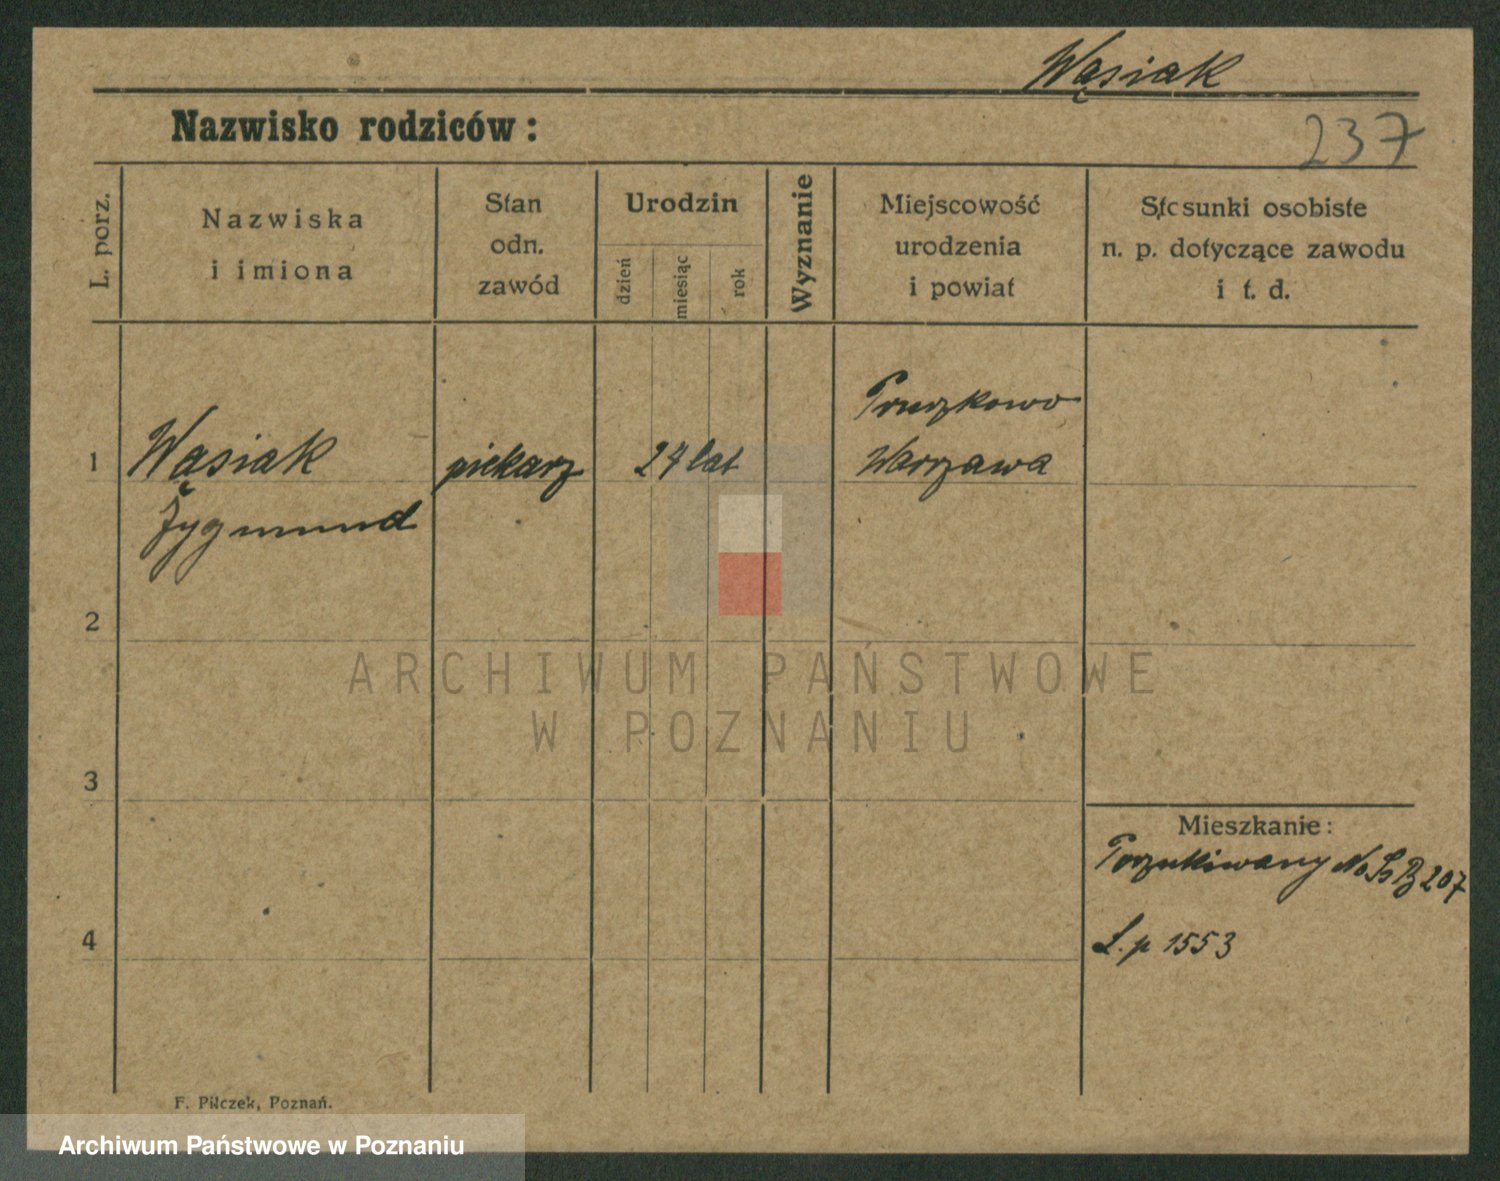 Wąsiak
Nazwisko rodziców:
237
L. porz.
Nazwiska
i imiona
Stan
odn.
zawód
Urodzin
dzień
miesiąc
rok
Wyznanie
Miejscowość
urodzenia
i powiat
Stosunki osobiste
n. p. dotyczące zawodu
i t. d.
1
Wąsiak
Zygmund
piekarz
24 lat
Pruszkowo
Warszawa
2
3
4
Mieszkanie:
Poszukiwany No 207
L. p 1553
F. Pilczek, Poznań.
ARCHIWUM PAŃSTWOWE
W POZNANIU
Archiwum Państwowe w Poznaniu